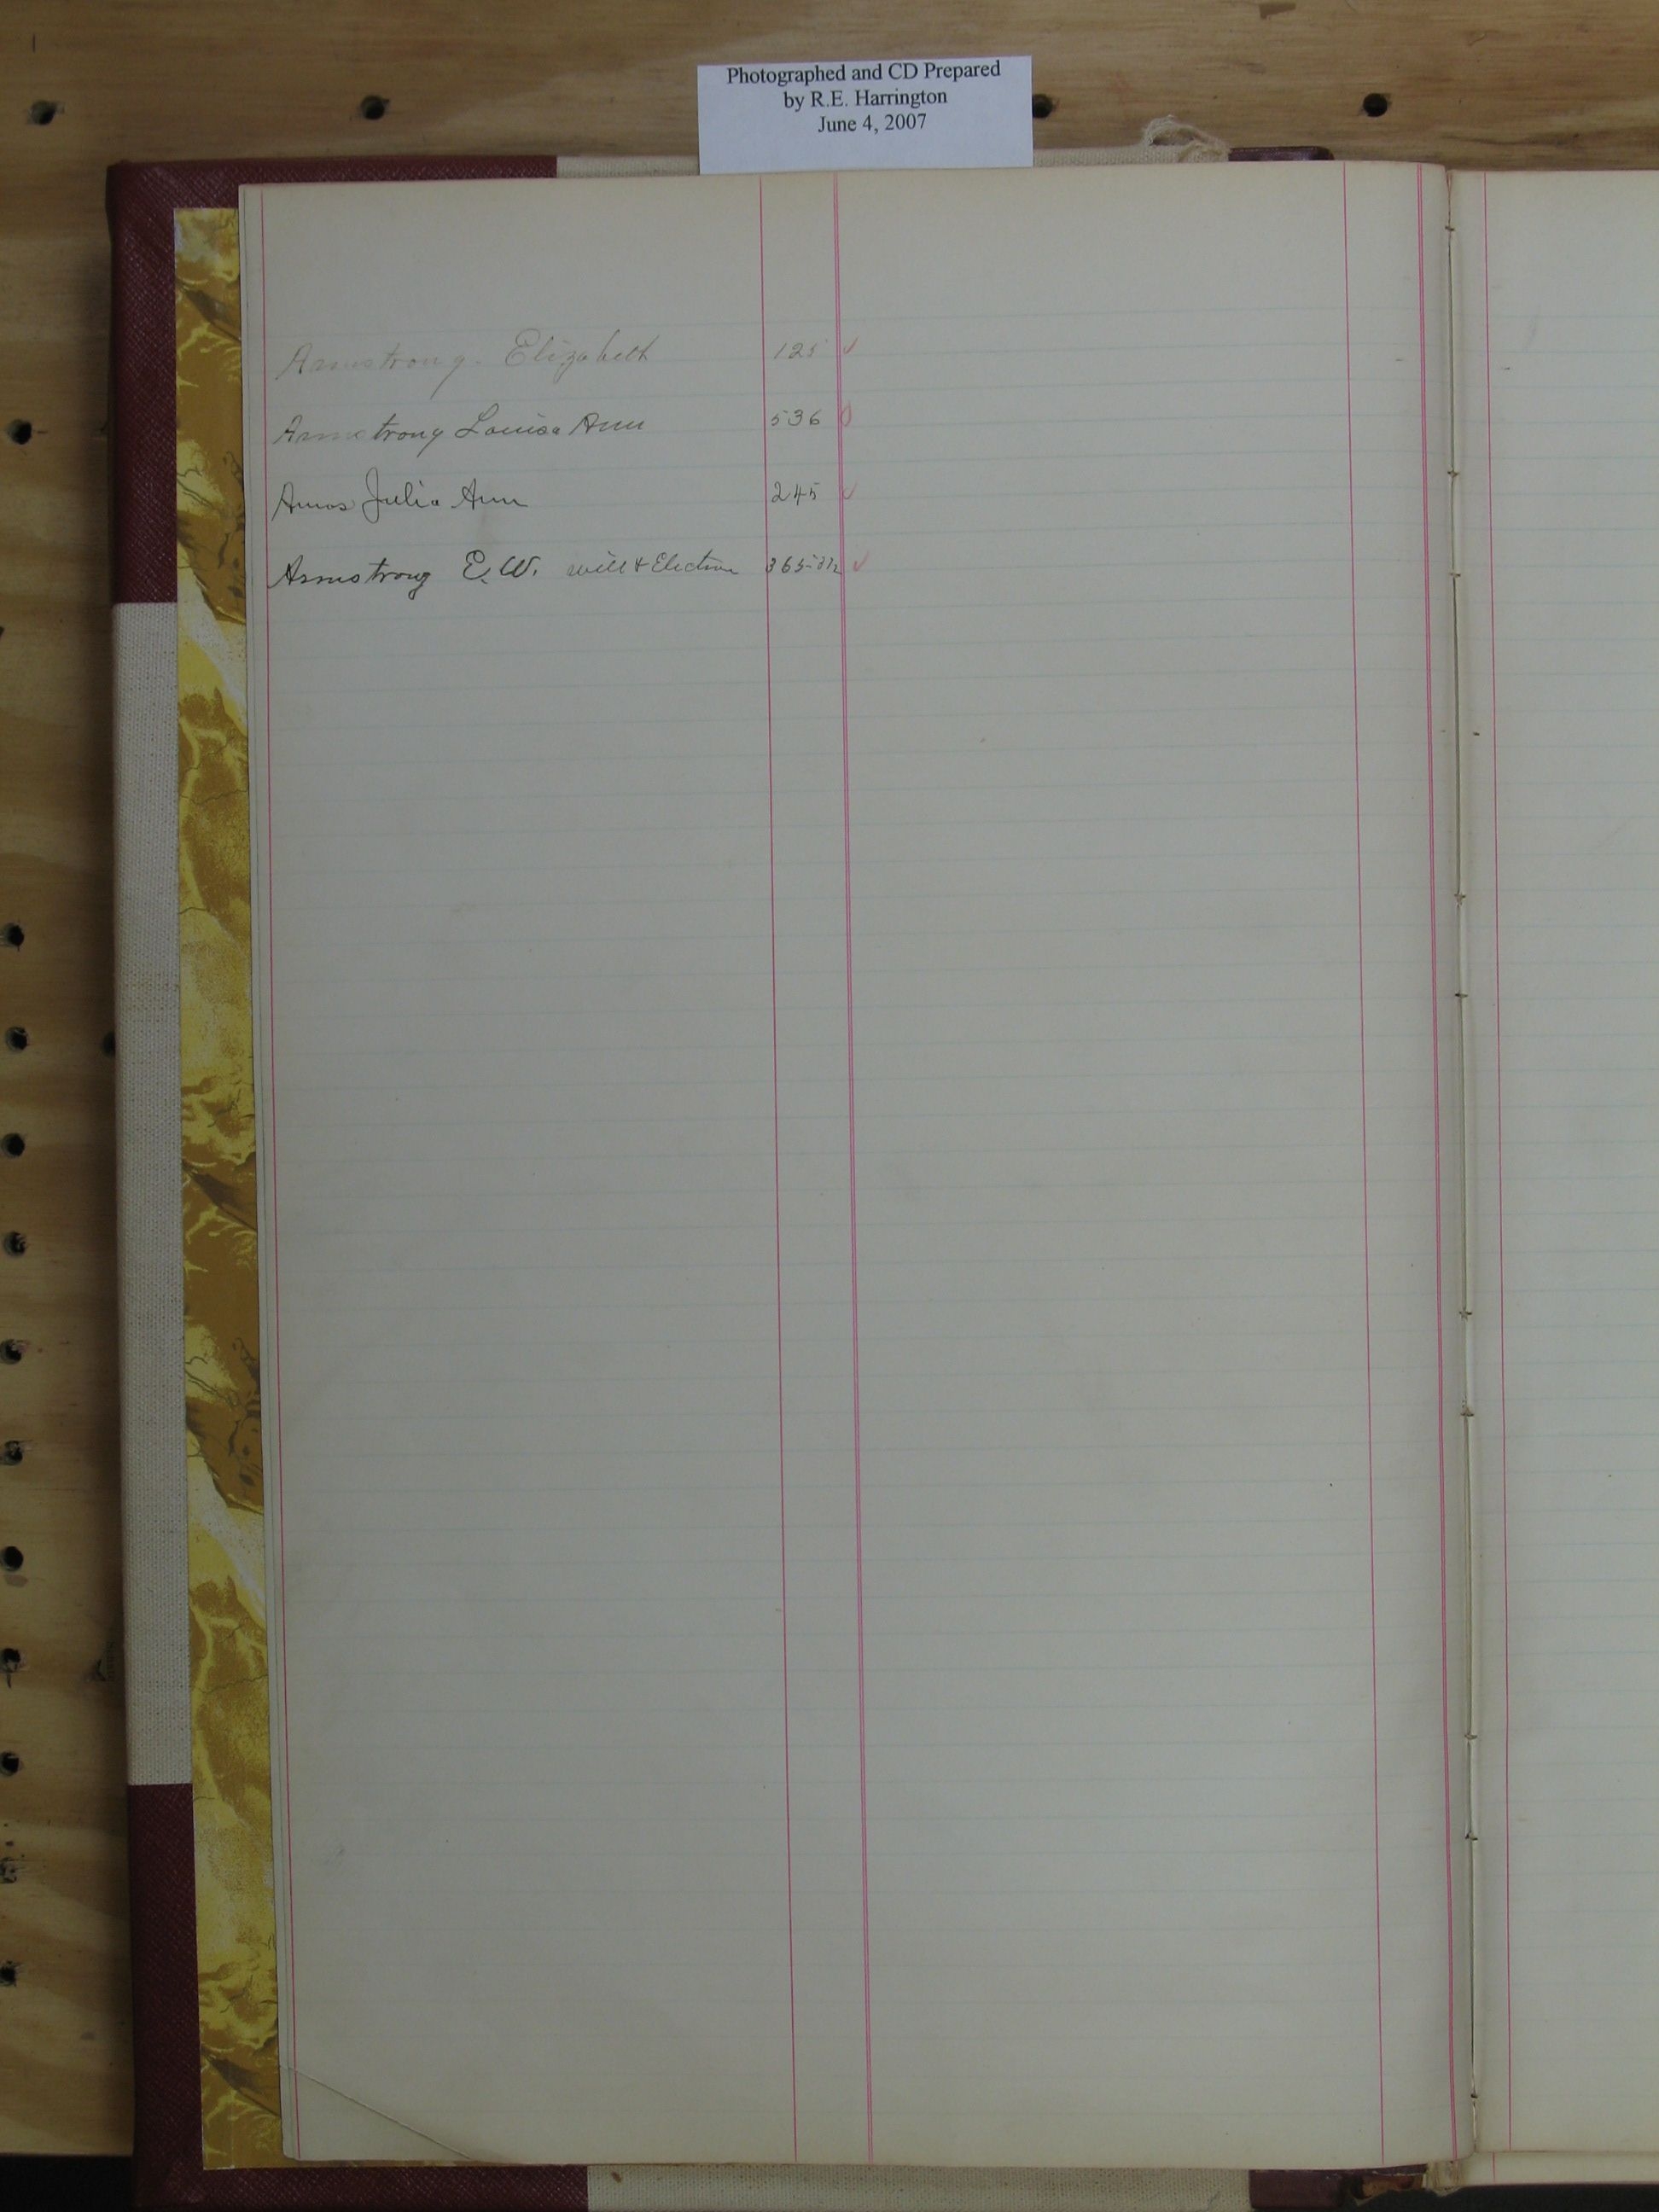 Photographed and CD Prepared
by R.E. Harrington
June 4, 2007
Armstrong. Elizabeth 125 ✓
Armstrong Louisa Ann 536
Amos Julia Ann 245 ✓
Armstrong E.W. will & Election ✓